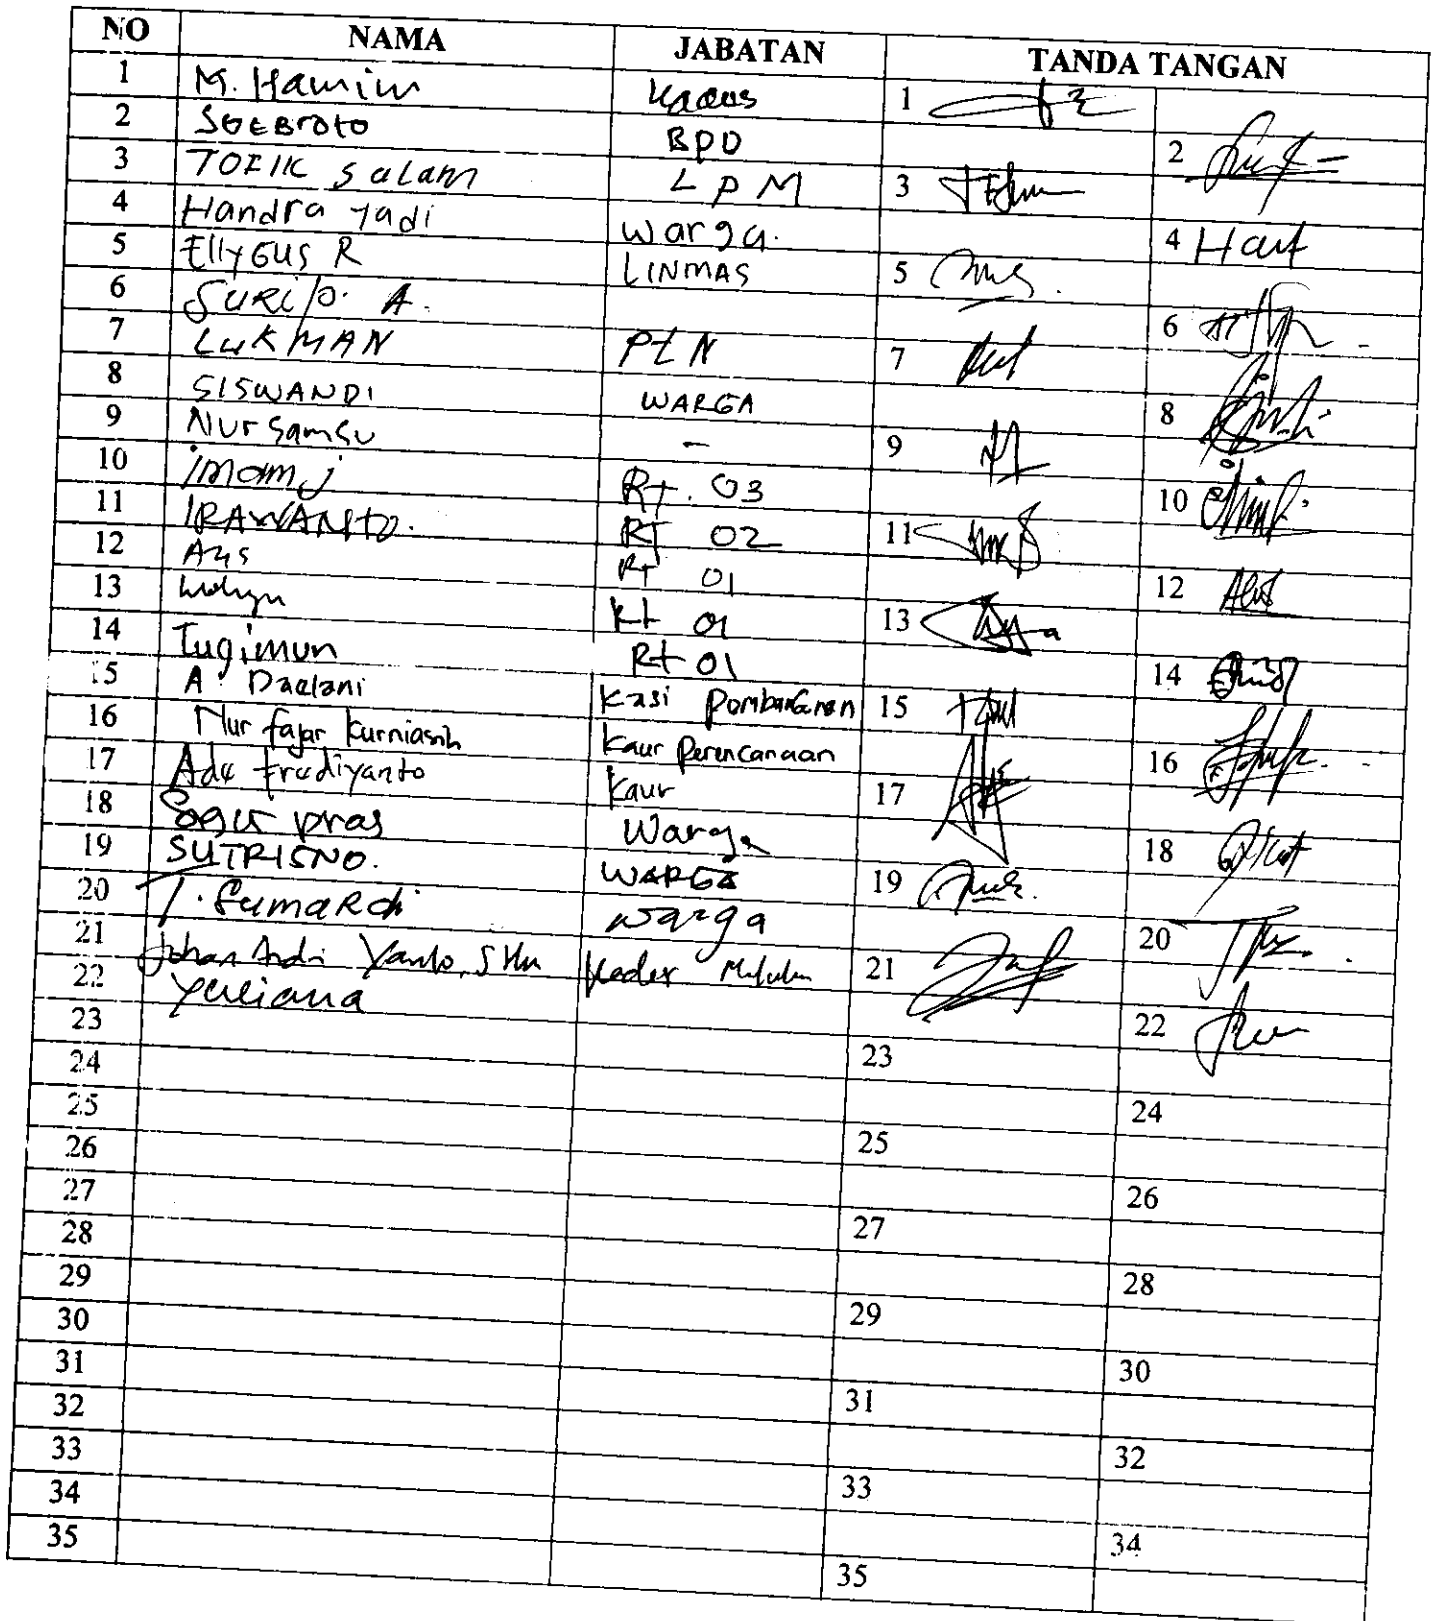 NO NAMA JABATAN TANDA TANGAN
1 M. Hamim Kadus 1
2 SOEBroto BPD 2
3 TOFIK Salam LPM 3
4 Handra Yadi warga. 4
5 EllyGUS R LINMAS 5
6 SURIP. A. 6
7 LUKMAN PLN 7
8 SISWANDI WARGA 8
9 Nur Samsu - 9
10 imam j Rt. 03 10
11 IRAWANTO. RT 02 11
12 Ags RT 01 12
13 Wahyu Rt 01 13
14 Tugimun Rt 01 14
15 A. Daelani Kasi Pembangunan 15
16 Nur fajar kurniasih Kaur Perencanaan 16
17 Ade Frediyanto Kaur 17
18 pras Warga 18
19 SUTRISNO. WARGA 19
20 T. SumaRdi warga 20
21 Johan Andri Yanto, Kader 21
22 Yuliana 22
23 23
24 24
25 25
26 26
27 27
28 28
29 29
30 30
31 31
32 32
33 33
34 34
35 35